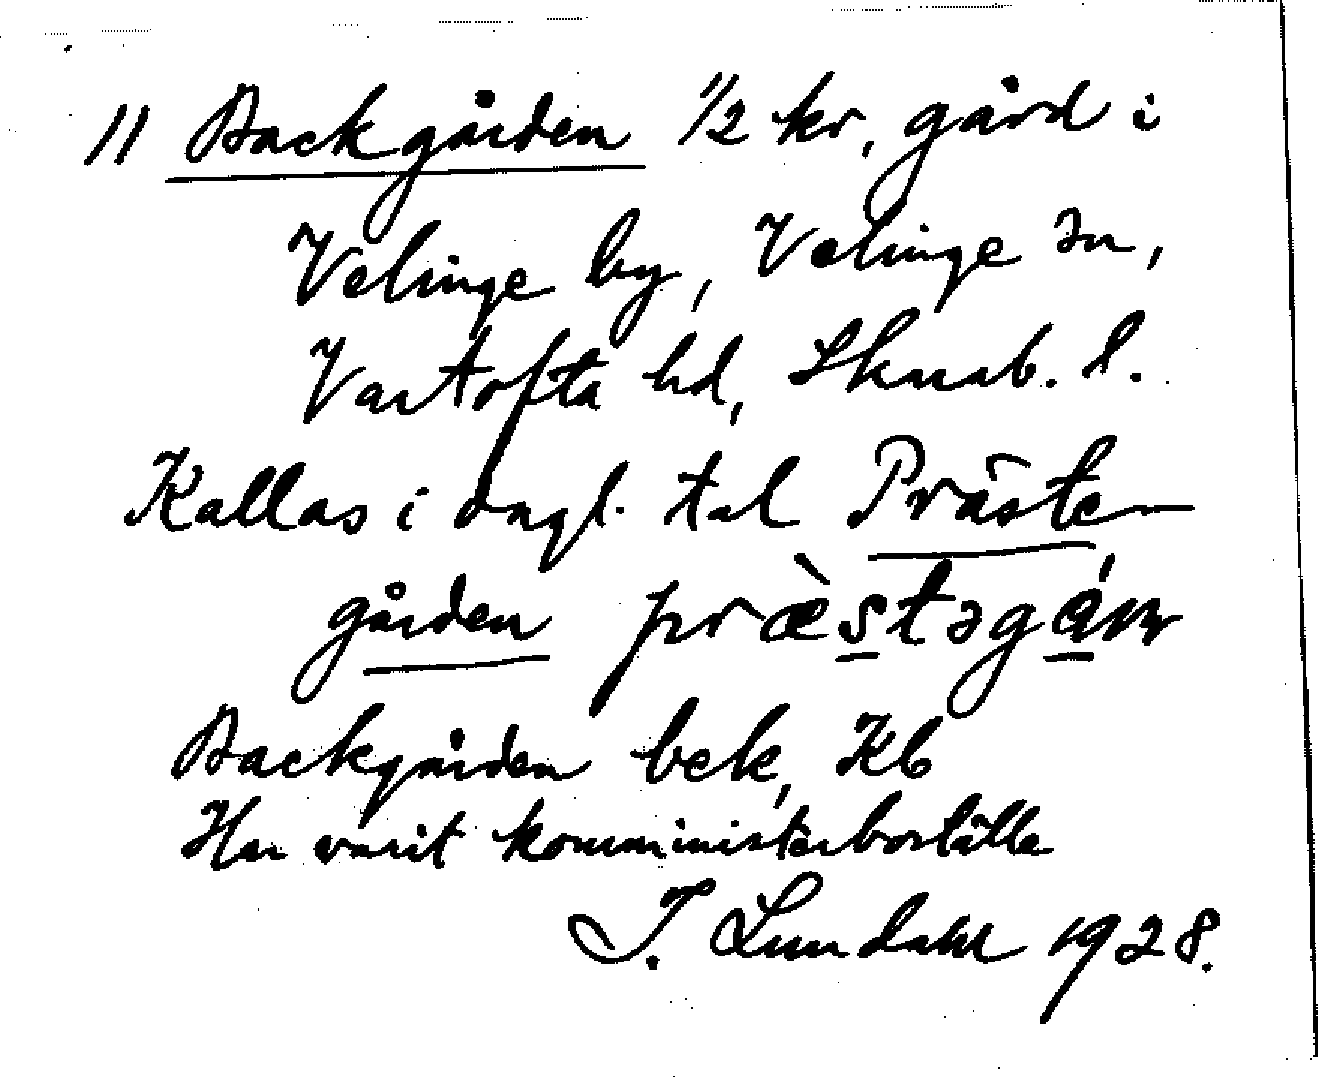 11 Backgården 1/2 kr, gård i
Velinge by, Velinge sn,
Vartofta hd, Skarab. l.
Kallas i dagl. tal Präste-
gården præ̀stəgáɳ
Backgården bek, Kb
Har varit komministerboställe
I. Lundahl 1928.